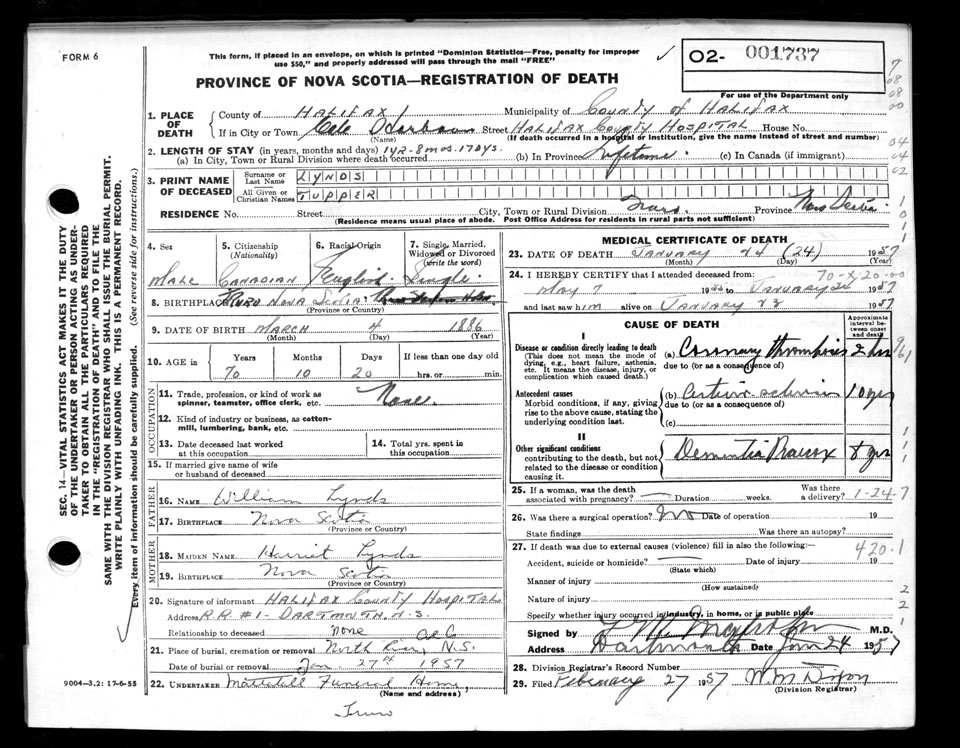 FORM 6
This form, if placed in an envelope, on which is printed "Dominion Statistics—Free, penalty for improper use $50," and properly addressed will pass through the mail "FREE"
✓
O2- 001737
For use of the Department only
PROVINCE OF NOVA SCOTIA—REGISTRATION OF DEATH
SEC. 14—VITAL STATISTICS ACT MAKES IT THE DUTY OF THE UNDERTAKER OR PERSON ACTING AS UNDERTAKER TO OBTAIN ALL THE PARTICULARS REQUIRED IN THE "REGISTRATION OF DEATH" AND TO FILE THE SAME WITH THE DIVISION REGISTRAR WHO SHALL ISSUE THE BURIAL PERMIT.
WRITE PLAINLY WITH UNFADING INK. THIS IS A PERMANENT RECORD.
Every item of information should be carefully supplied. (See reverse side for instructions.)
1. PLACE OF DEATH
County of HALIFAX Municipality of County of HALIFAX
If in City or Town Cole Harbour Street HALIFAX County HOSPITAL House No.
(Name) (If death occurred in a hospital or institution, give the name instead of street and number)
2. LENGTH OF STAY (in years, months and days)
(a) In City, Town or Rural Division where death occurred 1 yr-8 mos. 17 dys. (b) In Province Lifetime. (c) In Canada (if immigrant)
3. PRINT NAME OF DECEASED
Surname or Last Name LYNDS
All Given or Christian Names TUPPER
RESIDENCE No. Street City, Town or Rural Division Truro, Province Nova Scotia.
(Residence means usual place of abode. Post Office Address for residents in rural parts not sufficient)
4. Sex MALE
5. Citizenship (Nationality) CANADIAN
6. Racial Origin English
7. Single, Married, Widowed or Divorced (write the word) Single.
8. BIRTHPLACE TRURO NOVA SCOTIA
(Province or Country)
9. DATE OF BIRTH MARCH 4 1886
(Month) (Day) (Year)
10. AGE IN Years 70 Months 10 Days 20 If less than one day old hrs. or min.
OCCUPATION
11. Trade, profession, or kind of work as spinner, teamster, office clerk, etc. None.
12. Kind of industry or business, as cotton-mill, lumbering, bank, etc.
13. Date deceased last worked at this occupation
14. Total yrs. spent in this occupation
15. If married give name of wife or husband of deceased
FATHER
16. NAME William Lynds
17. BIRTHPLACE Nova Scotia
(Province or Country)
MOTHER
18. MAIDEN NAME Harriet Lynds
19. BIRTHPLACE Nova Scotia
(Province or Country)
20. Signature of informant HALIFAX County HOSPITAL
Address R.R. #1 - DARTMOUTH, N.S.
Relationship to deceased none
21. Place of burial, cremation or removal North River, N.S.
Date of burial or removal Jan 27th 1957
22. UNDERTAKER Mattatall Funeral Home,
(Name and address)
Truro
9004-3.2: 17-6-55
MEDICAL CERTIFICATE OF DEATH
23. DATE OF DEATH JANUARY 24 (24) 1957
(Month) (Day)
24. I HEREBY CERTIFY that I attended deceased from:
70-X/20-00
May 7 19 to JANUARY 24 1957
and last saw him alive on JANUARY 1957
CAUSE OF DEATH
Approximate interval between onset and death
I
Disease or condition directly leading to death
(This does not mean the mode of dying, e.g., heart failure, asthenia, etc. It means the disease, injury, or complication which caused death.)
(a) Coronary thrombosis 2 hrs
due to (or as a consequence of)
Antecedent causes
Morbid conditions, if any, giving rise to the above cause, stating the underlying condition last.
(b) Arterio-sclerosis 10 yrs
due to (or as a consequence of)
(c)
II
Other significant conditions contributing to the death, but not related to the disease or condition causing it.
Dementia Praecox 8 yrs
25. If a woman, was the death associated with pregnancy? — Duration weeks. Was there a delivery? 1-24-7
26. Was there a surgical operation? No Date of operation 19
State findings Was there an autopsy?
27. If death was due to external causes (violence) fill in also the following:— 420.1
Accident, suicide or homicide? — Date of injury 19
(State which)
Manner of injury
(How sustained)
Nature of injury
Specify whether injury occurred in industry, in home, or in public place
Signed by M.D.
Address Dartmouth Date Jan 24 1957
28. Division Registrar's Record Number
29. Filed February 27 1957 W M Dixon
(Division Registrar)